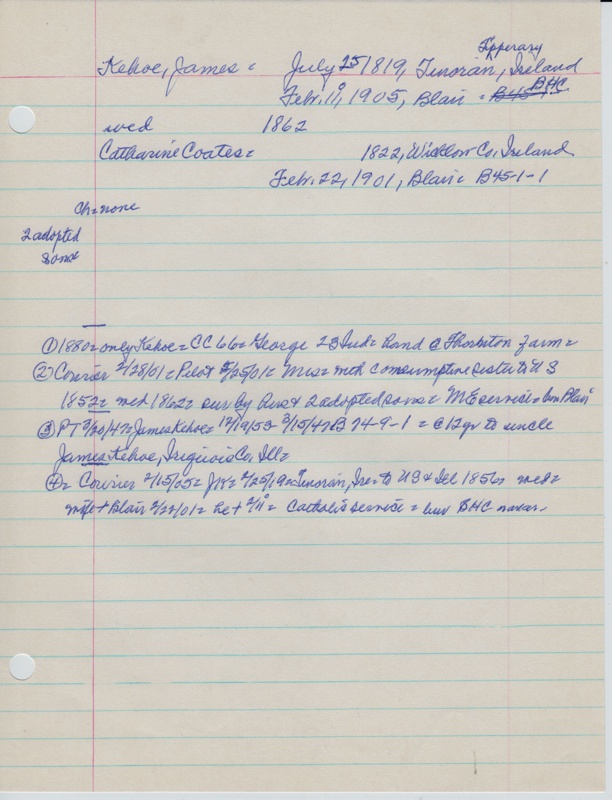 Tipperary
Kehoe, James = July 25 1819, Tinorán, Ireland
Feb. 11, 1905, Blair = B45-1, BHC.
wed 1862
Catharine Coates = 1822, Wicklow Co, Ireland
Febr. 22, 1901, Blair = B45-1-1
Ch = none
2 adopted
sons
① 1880 = only Kehoe = CC 66 = George 23 Ind = hand @ Thornton farm =
② Courier 2/28/01 = Pilot = Mrs = with consumptive sister to US
1852 = wed 1862 = sur by hus & 2 adopted sons = ME service = bur Blair
③ PT 3/20/47 = James Kehoe = 3/15/47 B 74-9-1 = @ 12 yr to uncle
James Kehoe, Iroquois Co, Ill =
④ = Courier 2/15/05 = Jas = Tinorán, Ire to US & Ill 1856 wed =
wife + Blair 2/22/01 = he + 2/11 = Catholic service = bur BHC